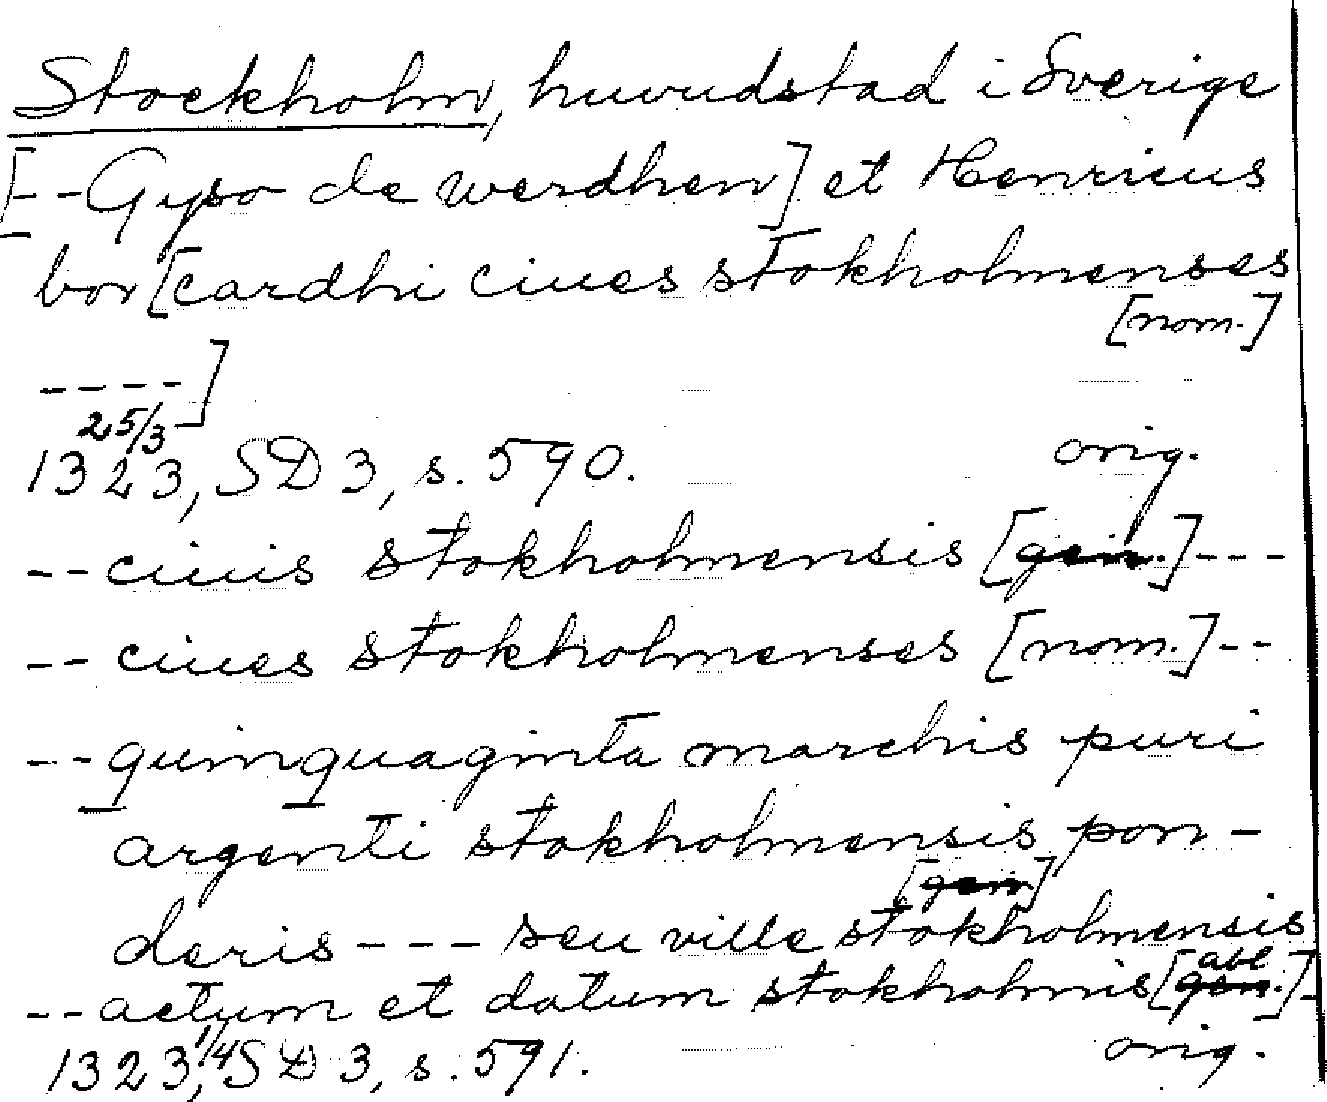 Stockholm, huvudstad i Sverige
[--Gyso de werdhen] et Henricus
bor[cardhi ciues stokholmenses
[nom.]
----]
25/3
1323, SD 3, s. 590. orig.
--ciuis stokholmensis [gen.]---
--ciues stokholmenses [nom.]--
--quinquaginta marchis puri
argenti stokholmensis pon-
[gen]
deris --- seu ville stokholmensis
--actum et datum stokholmis [gen. abl]-
1323, 1/4 SD 3, s. 591. orig.